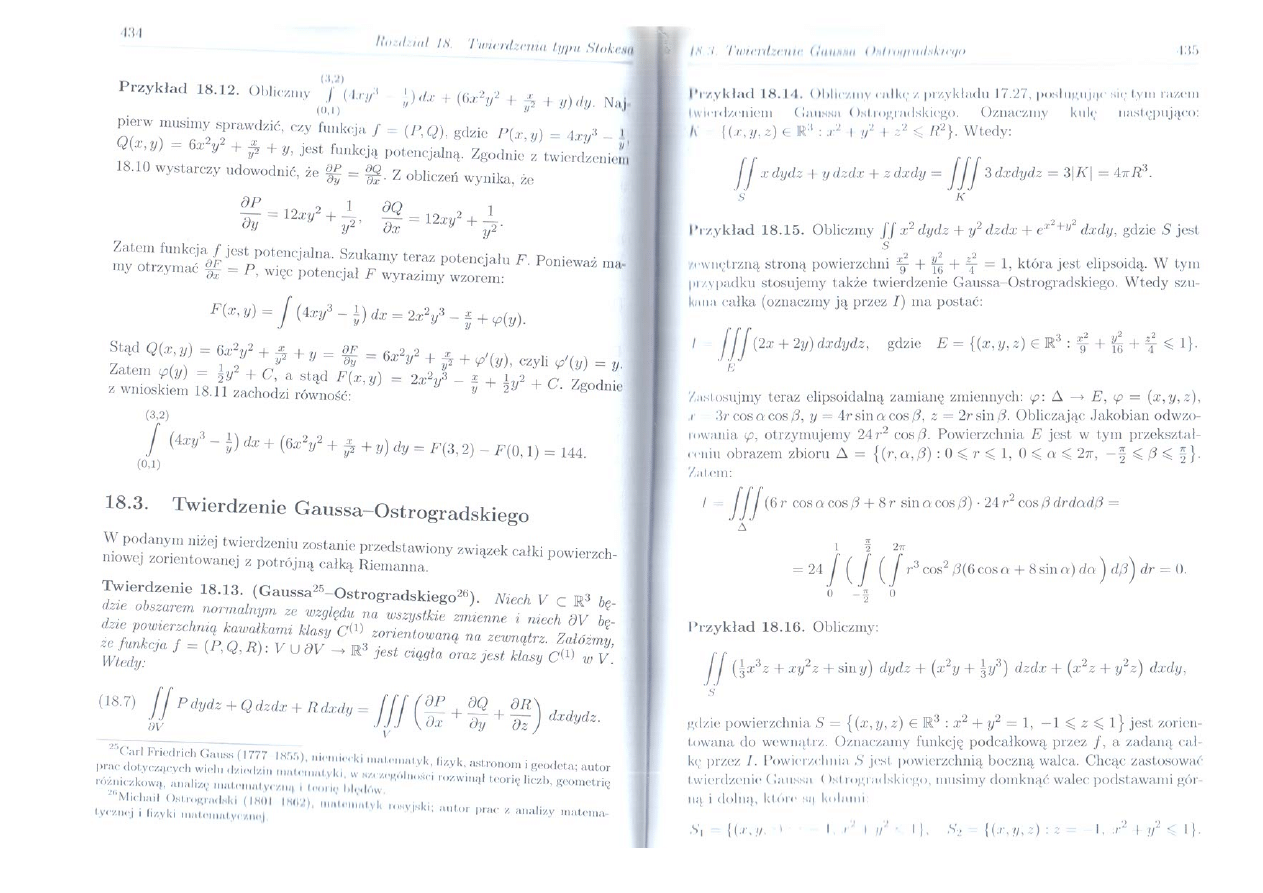 434
Rozdział 18. Twierdzenia typu Stokesa
Przykład 18.12. Obliczmy ∫_{(0,1)}^{(3,2)} (4xy³ − 1/y) dx + (6x²y² + x/y² + y) dy. Naj-
pierw musimy sprawdzić, czy funkcja f = (P, Q), gdzie P(x, y) = 4xy³ − 1/y,
Q(x, y) = 6x²y² + x/y² + y, jest funkcją potencjalną. Zgodnie z twierdzeniem
18.10 wystarczy udowodnić, że ∂P/∂y = ∂Q/∂x. Z obliczeń wynika, że
∂P/∂y = 12xy² + 1/y², ∂Q/∂x = 12xy² + 1/y².
Zatem funkcja f jest potencjalna. Szukamy teraz potencjału F. Ponieważ ma-
my otrzymać ∂F/∂x = P, więc potencjał F wyrazimy wzorem:
F(x, y) = ∫ (4xy³ − 1/y) dx = 2x²y³ − x/y + φ(y).
Stąd Q(x, y) = 6x²y² + x/y² + y = ∂F/∂y = 6x²y² + x/y² + φ′(y), czyli φ′(y) = y.
Zatem φ(y) = ½y² + C, a stąd F(x, y) = 2x²y³ − x/y + ½y² + C. Zgodnie
z wnioskiem 18.11 zachodzi równość:
∫_{(0,1)}^{(3,2)} (4xy³ − 1/y) dx + (6x²y² + x/y² + y) dy = F(3, 2) − F(0, 1) = 144.
18.3. Twierdzenie Gaussa–Ostrogradskiego
W podanym niżej twierdzeniu zostanie przedstawiony związek całki powierzch-
niowej zorientowanej z potrójną całką Riemanna.
Twierdzenie 18.13. (Gaussa²⁵–Ostrogradskiego²⁶). Niech V ⊂ ℝ³ bę-
dzie obszarem normalnym ze względu na wszystkie zmienne i niech ∂V bę-
dzie powierzchnią kawałkami klasy C⁽¹⁾ zorientowaną na zewnątrz. Załóżmy,
że funkcja f = (P, Q, R): V ∪ ∂V → ℝ³ jest ciągła oraz jest klasy C⁽¹⁾ w V.
Wtedy:
(18.7) ∬_{∂V} P dydz + Q dzdx + R dxdy = ∭_V (∂P/∂x + ∂Q/∂y + ∂R/∂z) dxdydz.
²⁵Carl Friedrich Gauss (1777–1855), niemiecki matematyk, fizyk, astronom i geodeta; autor
prac dotyczących wielu dziedzin matematyki, w szczególności rozwinął teorię liczb, geometrię
różniczkową, analizę matematyczną i teorię błędów.
²⁶Michaił Ostrogradski (1801–1862), matematyk rosyjski; autor prac z analizy matema-
tycznej i fizyki matematycznej.
18.3. Twierdzenie Gaussa–Ostrogradskiego
435
Przykład 18.14. Obliczmy całkę z przykładu 17.27, posługując się tym razem
twierdzeniem Gaussa–Ostrogradskiego. Oznaczmy kulę następująco:
K = {(x, y, z) ∈ ℝ³ : x² + y² + z² ⩽ R²}. Wtedy:
∬_S x dydz + y dzdx + z dxdy = ∭_K 3 dxdydz = 3|K| = 4πR³.
Przykład 18.15. Obliczmy ∬_S x² dydz + y² dzdx + e^{x²+y²} dxdy, gdzie S jest
zewnętrzną stroną powierzchni x²/9 + y²/16 + z²/4 = 1, która jest elipsoidą. W tym
przypadku stosujemy także twierdzenie Gaussa–Ostrogradskiego. Wtedy szu-
kana całka (oznaczmy ją przez I) ma postać:
I = ∭_E (2x + 2y) dxdydz, gdzie E = {(x, y, z) ∈ ℝ³ : x²/9 + y²/16 + z²/4 ⩽ 1}.
Zastosujmy teraz elipsoidalną zamianę zmiennych: φ: Δ → E, φ = (x, y, z),
x = 3r cos α cos β, y = 4r sin α cos β, z = 2r sin β. Obliczając Jakobian odwzo-
rowania φ, otrzymujemy 24r² cos β. Powierzchnia E jest w tym przekształ-
ceniu obrazem zbioru Δ = {(r, α, β) : 0 ⩽ r ⩽ 1, 0 ⩽ α ⩽ 2π, −π/2 ⩽ β ⩽ π/2}.
Zatem:
I = ∭_Δ (6 r cos α cos β + 8 r sin α cos β) · 24 r² cos β drdαdβ =
= 24 ∫_0^1 ( ∫_{−π/2}^{π/2} ( ∫_0^{2π} r³ cos² β(6 cos α + 8 sin α) dα ) dβ ) dr = 0.
Przykład 18.16. Obliczmy:
∬_S (⅓x³z + xy²z + sin y) dydz + (x²y + ⅓y³) dzdx + (x²z + y²z) dxdy,
gdzie powierzchnia S = {(x, y, z) ∈ ℝ³ : x² + y² = 1, −1 ⩽ z ⩽ 1} jest zorien-
towana do wewnątrz. Oznaczamy funkcję podcałkową przez f, a zadaną cał-
kę przez I. Powierzchnia S jest powierzchnią boczną walca. Chcąc zastosować
twierdzenie Gaussa–Ostrogradskiego, musimy domknąć walec podstawami gór-
ną i dolną, które są kołami:
S₁ = {(x, y, 1, x² + y² ⩽ 1}, S₂ = {(x, y, z) : z = −1, x² + y² ⩽ 1}.